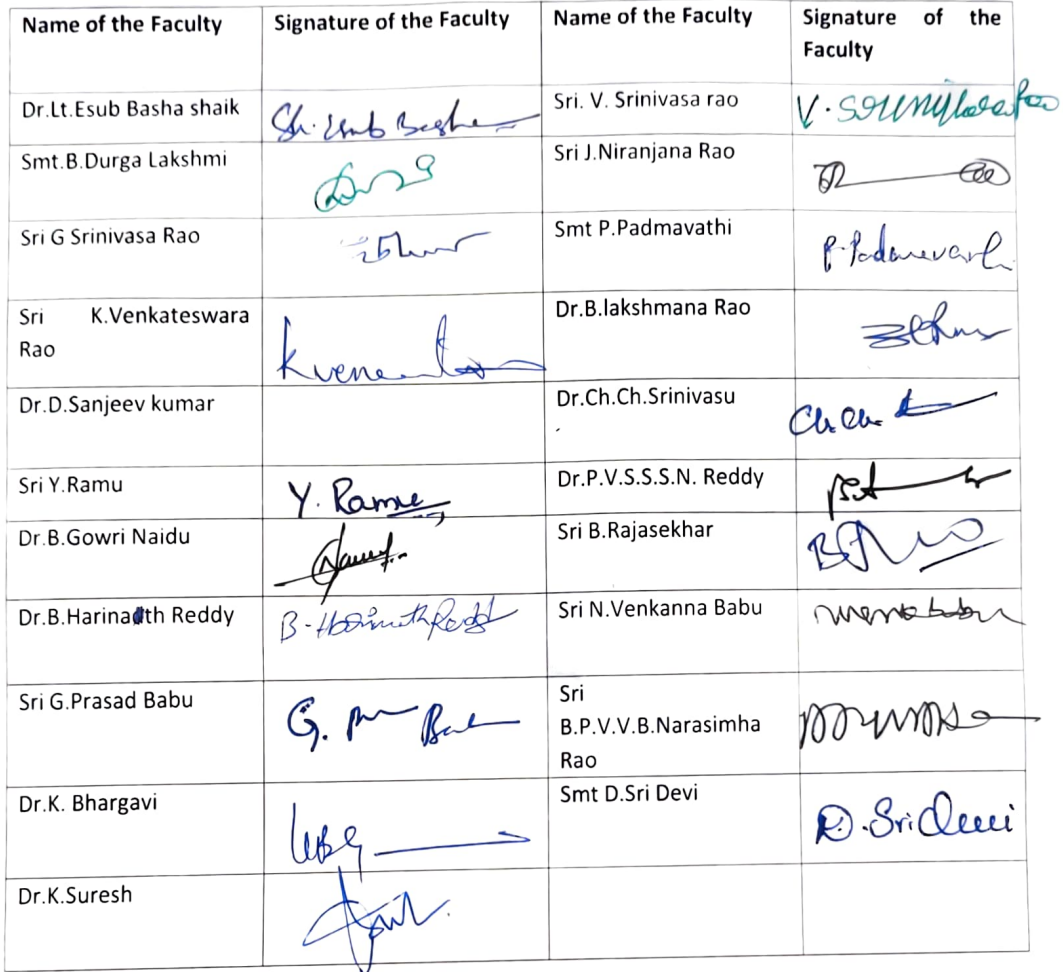 Name of the Faculty Signature of the Faculty Name of the Faculty Signature of the
Faculty
Dr.Lt.Esub Basha shaik Sk. Esub Basha Sri. V. Srinivasa rao
Smt.B.Durga Lakshmi Sri J.Niranjana Rao
Sri G Srinivasa Rao Smt P.Padmavathi P. Padmavathi
Sri K.Venkateswara
Rao
Dr.B.lakshmana Rao
Dr.D.Sanjeev kumar Dr.Ch.Ch.Srinivasu Ch. Ch.
Sri Y.Ramu Y. Ramu Dr.P.V.S.S.S.N. Reddy
Dr.B.Gowri Naidu Sri B.Rajasekhar
Dr.B.Harinadth Reddy B-Harinath Reddy Sri N.Venkanna Babu
Sri G.Prasad Babu G. Sri
B.P.V.V.B.Narasimha
Rao
Dr.K. Bhargavi Smt D.Sri Devi D. Sri Devi
Dr.K.Suresh